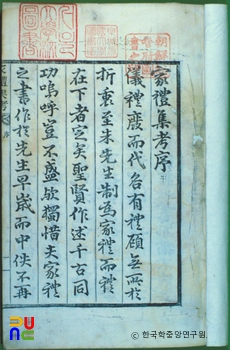 家禮集考序
儀禮廢而代各有禮顧無所於
折衷至朱先生制爲家禮而禮
在下者定矣聖賢作述千古同
功嗚呼豈不盛歟獨惜夫家禮
之書作於先生早歲而中佚不再
ⓒ 한국학중앙연구원